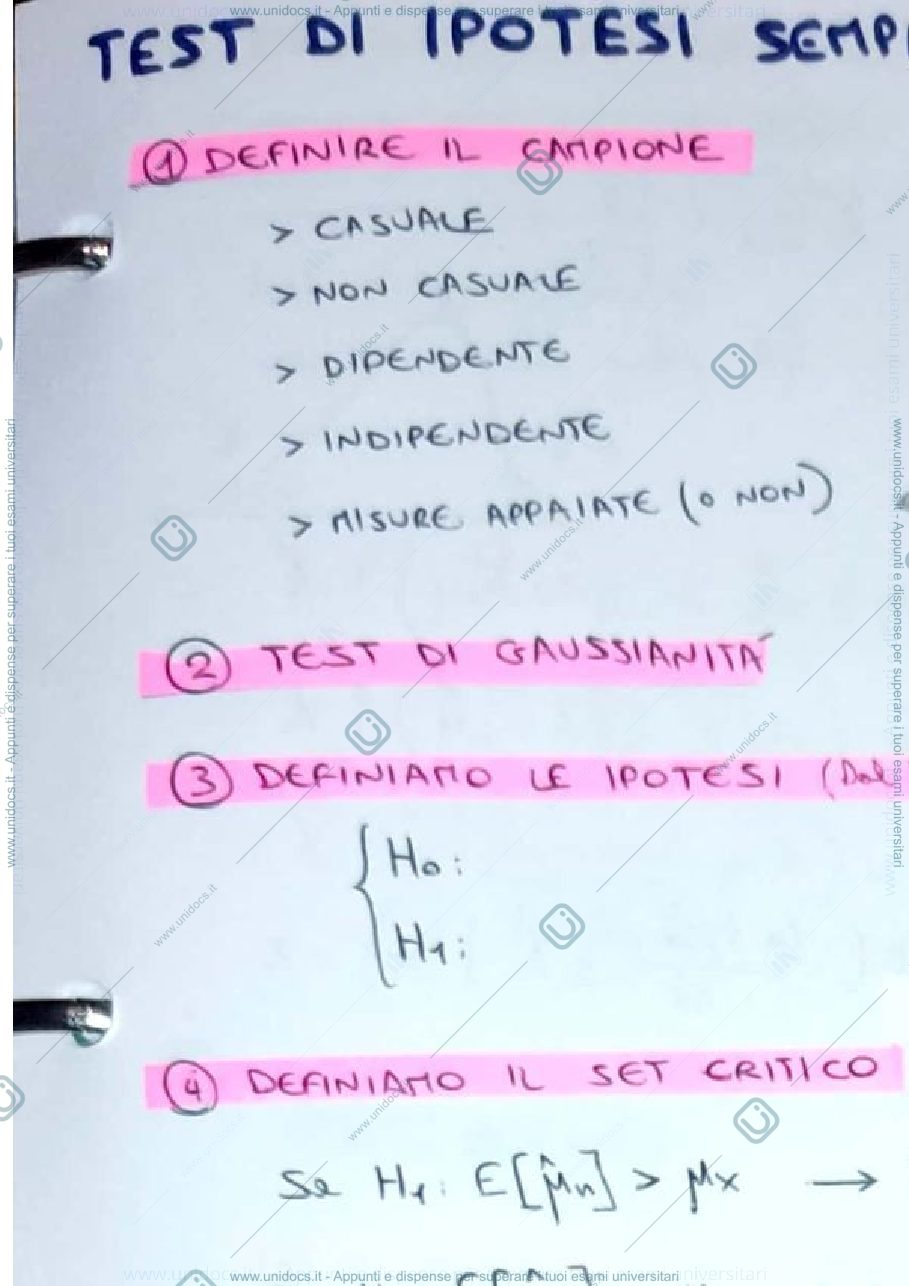 www.unidocs.it - Appunti e dispense per superare i tuoi esami universitari
TEST DI IPOTESI
① DEFINIRE IL CAMPIONE
> CASUALE
> NON CASUALE
> DIPENDENTE
> INDIPENDENTE
> MISURE APPAIATE (O NON)
② TEST DI GAUSSIANITÀ
③ DEFINIAMO LE IPOTESI
H₀:
H₁:
④ DEFINIAMO IL SET CRITICO
Se H₁: E[μ̂n] > μx →
www.unidocs.it - Appunti e dispense per superare i tuoi esami universitari
www.unidocs.it - Appunti e dispense per superare i tuoi esami universitari
www.unidocs.it - Appunti e dispense per superare i tuoi esami universitari